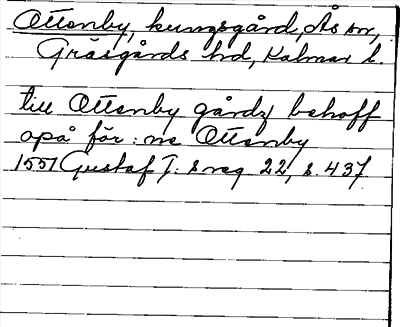 Ottenby, kungsgård, Ås sn,
Gräsgårds hd, Kalmar l.
till Ottenby gårdz behoff
opå för:ne Ottenby
1551 Gustaf I: s reg 22, s. 437